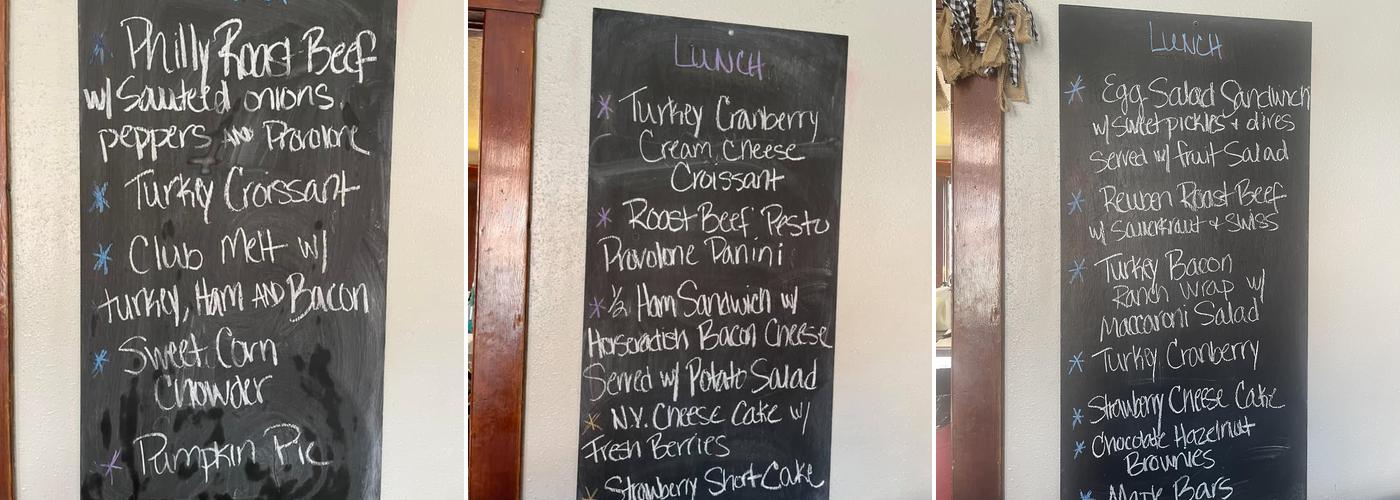 * Philly Roast Beef
w/ Sauteéd onions
peppers AND Provolone
* Turkey Croissant
* Club Melt w/
turkey, Ham AND Bacon
* Sweet Corn
Chowder
* Pumpkin Pie
LUNCH
* Turkey Cranberry
Cream Cheese
Croissant
* Roast Beef Pesto
Provolone Panini
* 1/2 Ham Sandwich w/
Horseradish Bacon Cheese
Served w/ Potato Salad
* N.Y. Cheese Cake w/
Fresh Berries
* Strawberry Short Cake
LUNCH
* Egg Salad Sandwich
w/ Sweet pickles + olives
Served w/ fruit Salad
* Reuben Roast Beef
w/ Sauerkraut & Swiss
* Turkey Bacon
Ranch Wrap w/
Maccaroni Salad
* Turkey Cranberry
* Strawberry Cheese Cake
* Chocolate Hazelnut
Brownies
* Bars